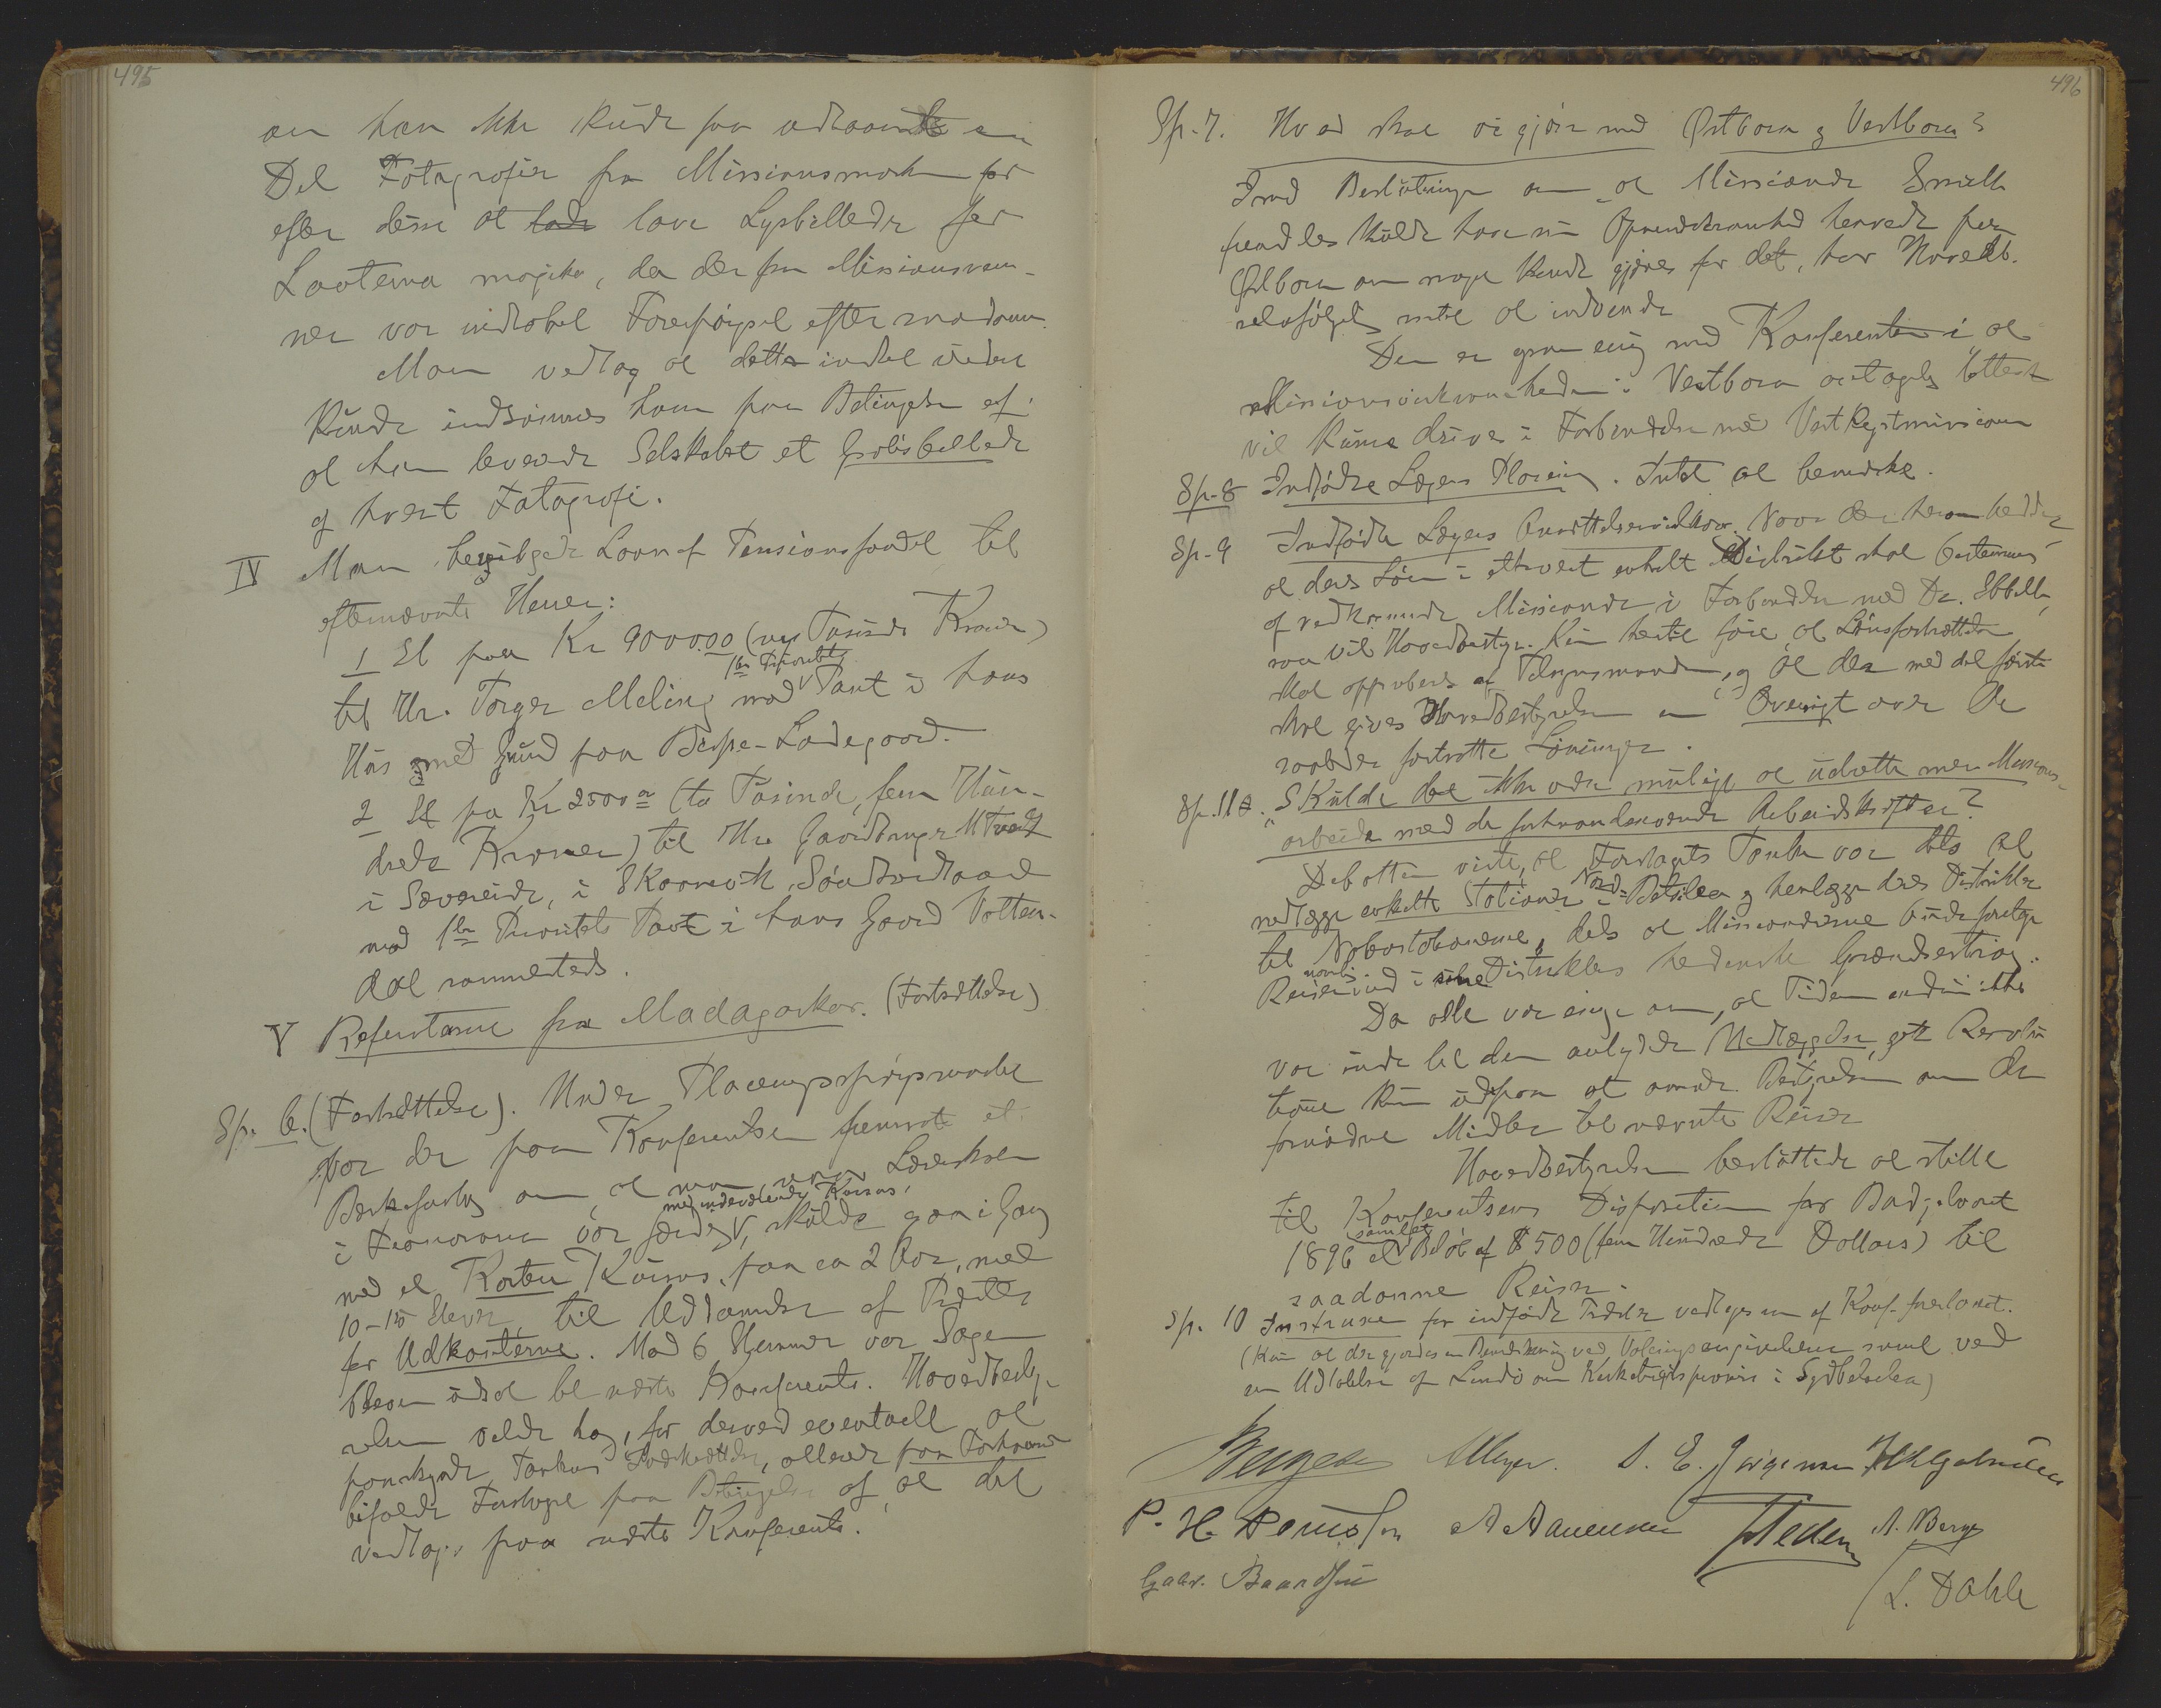 495
om han ikke kunde faa udlaant en
Del Fotografier fra Missionsmarken for
efter disse at lade lave Lysbilleder for
Laterna magika, da der fra Missionsven-
ner var indløbet Forespørgsel efter saadanne.
Man vedtog at dette indtil videre
kunde indrømmes ham paa Betingelse af
at han leverede Selskabet et Gratisbillede
af hvert Fotografi.
IV Man bevilgede Laan af Pensionsfondet til
efternævnte Herrer:
1 Et paa Kr 9000.00 (ni Tusinde Kroner)
til Hr. Torger Meling mod 1ste Prioritets Pant i hans
Hus med Grund paa Bispe-Ladegaard.
2 Et paa Kr 2500 (to Tusinde, fem Hun-
drede Kroner) til Hr. Gaardbruger
i Sævareide, i Skaanevik, Søndhordland
mod 1ste Prioritets Pant i hans Gaard
sammesteds.
V Referaterne fra Madagaskar. (Fortsættelse)
Sp. 6. (Fortsættelse). Under Placeringsspørgsmaalet
var der paa Konferentsen fremsat et
Bænkeforslag om, at man, naar Læreskolen
i Fianarana var færdig med indeværende Kursus, skulde gaa i Gang
med et Kortere Kursus, paa ca 2 Aar, med
10-15 Elever, til Uddannelse af Prester
for Udkanterne. Mod 6 Stemmer var Sagen
bleven udsat til næste Konferents. Hovedbesty-
relsen valde dog, for derved eventuelt at
paaskynde Tankens Iværksættelse, allerede paa Forhaand
bifalde Forslaget paa Betingelse af at det
vedtages paa næste Konferents.
496
Sp. 7. Hvad skal vi gjøre med Østbara og Vestbara?
Imod Beslutningen om at Missionær Smith
fremdeles skulde have sin Opmerksomhed henvendt paa
Østbara om noget kunde gjøres for det, har Hovedb.
selvfølgelig intet at indvende
Den er ogsaa enig med Konferentsen i at
Missionsvirksomheden i Vestbara antagelig lettest
vil kunne drives i Forbindelse med Vestkystmissionen
Sp. 8 Indfødte Lægers Placering. Intet at bemærke.
Sp. 9 Indfødte Lægers Ansættelsesvilkaar. Naar der herom hedder,
at deres Løn i ethvert enkelt Distrikt skal bestemmes
af vedkommende Missionær i Forbindelse med Dr. Ebbell,
saa vil Hovedbestyr. kun hertil føie, at Lønsfastsættelsen
skal approberes af Tilsynsmanden, og at der med det første
skal gives Hovedbestyrelsen en Oversigt over de
saaledes fastsatte Lønninger.
Sp. 11 a. "Skulde det ikke være muligt at udrette mer Missions-
arbeide med de forhaandenværende Arbeidskræfter?
Debatten viste, at Forslagets Tanke var dels at
nedlægge enkelte Stationer i Nord-Betsileo og henlægge deres Distrikter
til Nabostationerne, dels at Missionærerne burde foretage
Reiser ind i Distriktets hedenske Grændsestrøg.
Da alle var enige om, at Tiden endnu ikke
var inde til den antydede Nedlæggelse, gik Resolu-
tionen kun ud paa at anmode Bestyrelsen om de
fornødne Midler til nævnte Reiser
Hovedbestyrelsen besluttede at stille
til Konferentsens Disposition for Budgetaaret
1896 et samlet Beløb af $ 500 (fem Hundrede Dollars) til
saadanne Reiser.
Sp. 10 Instruxe for indfødte Prester vedtages som af Konf. foreslaaet.
(Kun at der gjordes en Bemærkning ved samt ved
en Udtalelse af Lindø om i Sydbetsileo)
A Meyer. S. E. Jørgensen
P. H. A Aanensen A. Berge
Gabr. Baardsen
L. Dahle